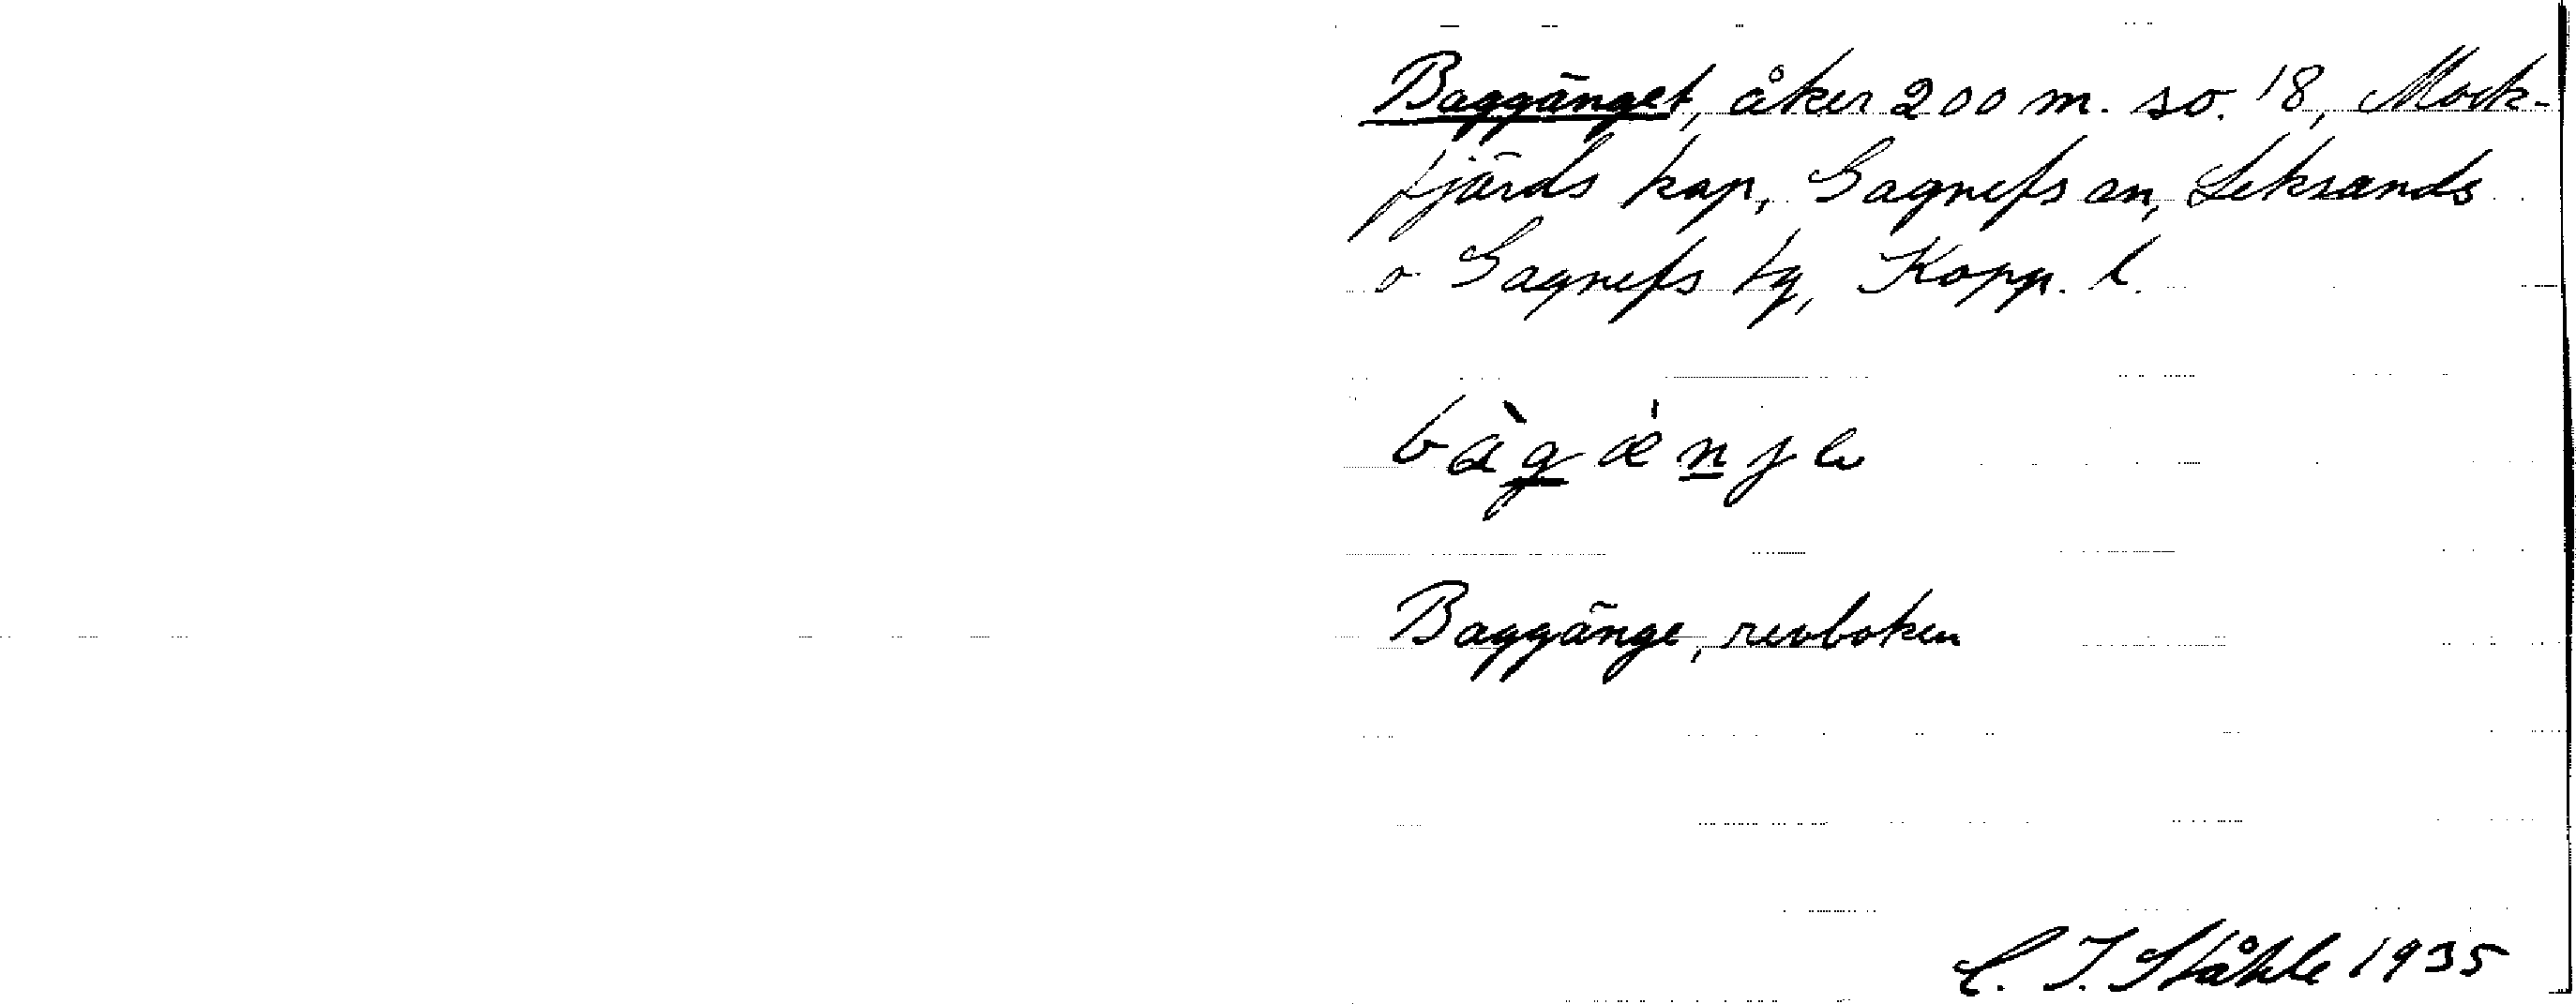 Baggänget, åker 200 m. so. 18, Mock-
fjärds kap, Gagnefs sn, Leksands
o Gagnefs tg, Kopp. l.
Baggänge, revboken
C. I. Ståhle 1935